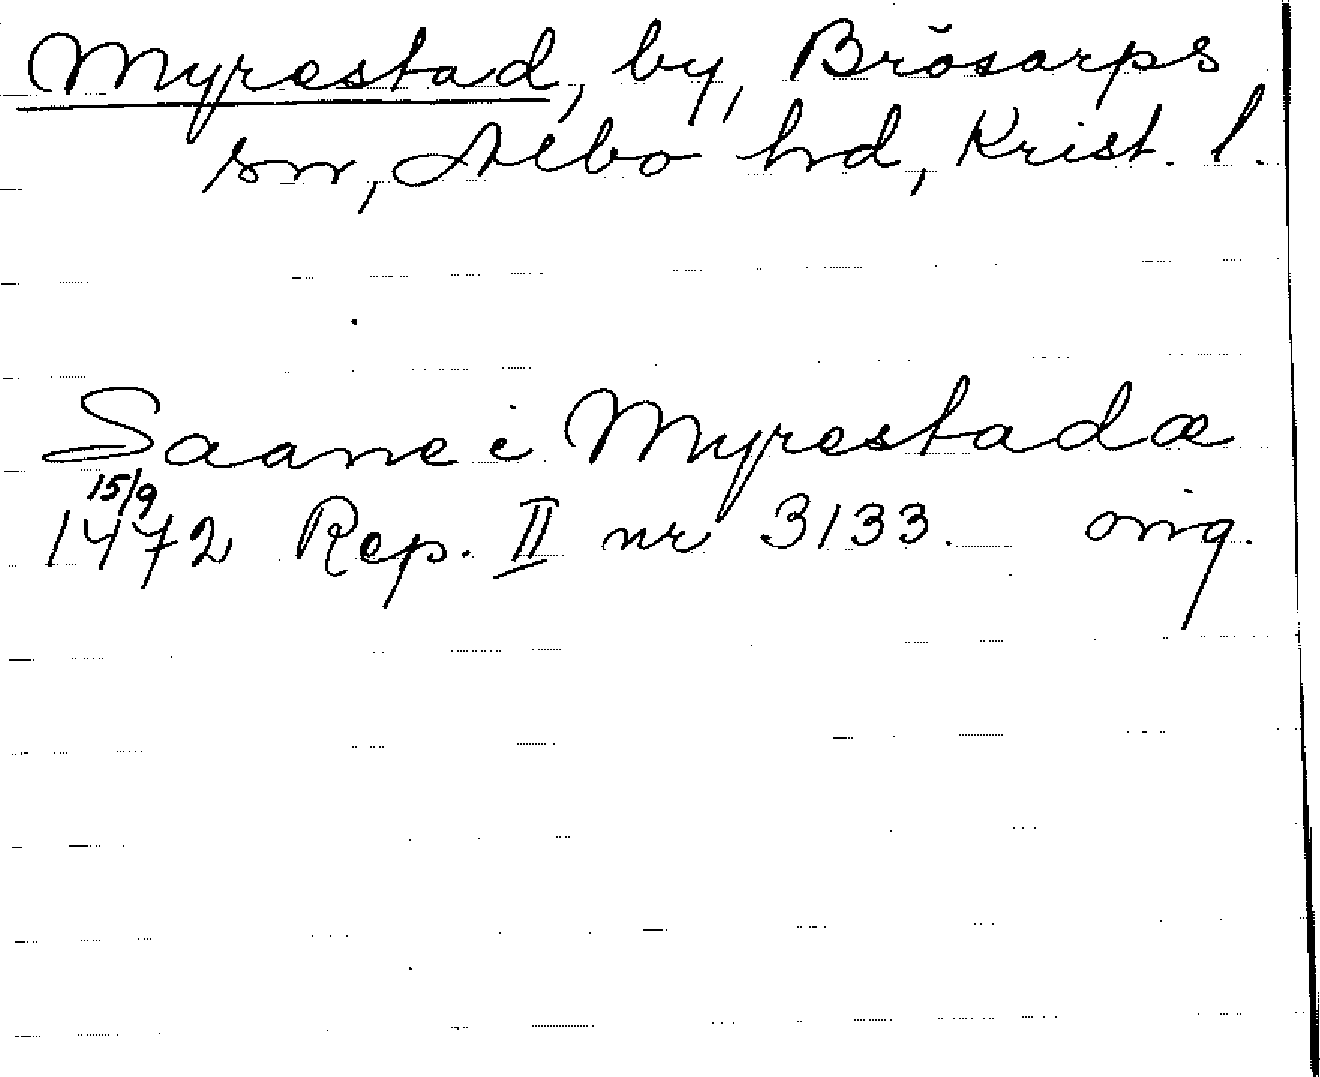 Myrestad, by, Brösarps
sn, Albo hd, Krist. l.
Saane i Myrestadæ
15/9
1472 Rep. II nr 3133. orig.